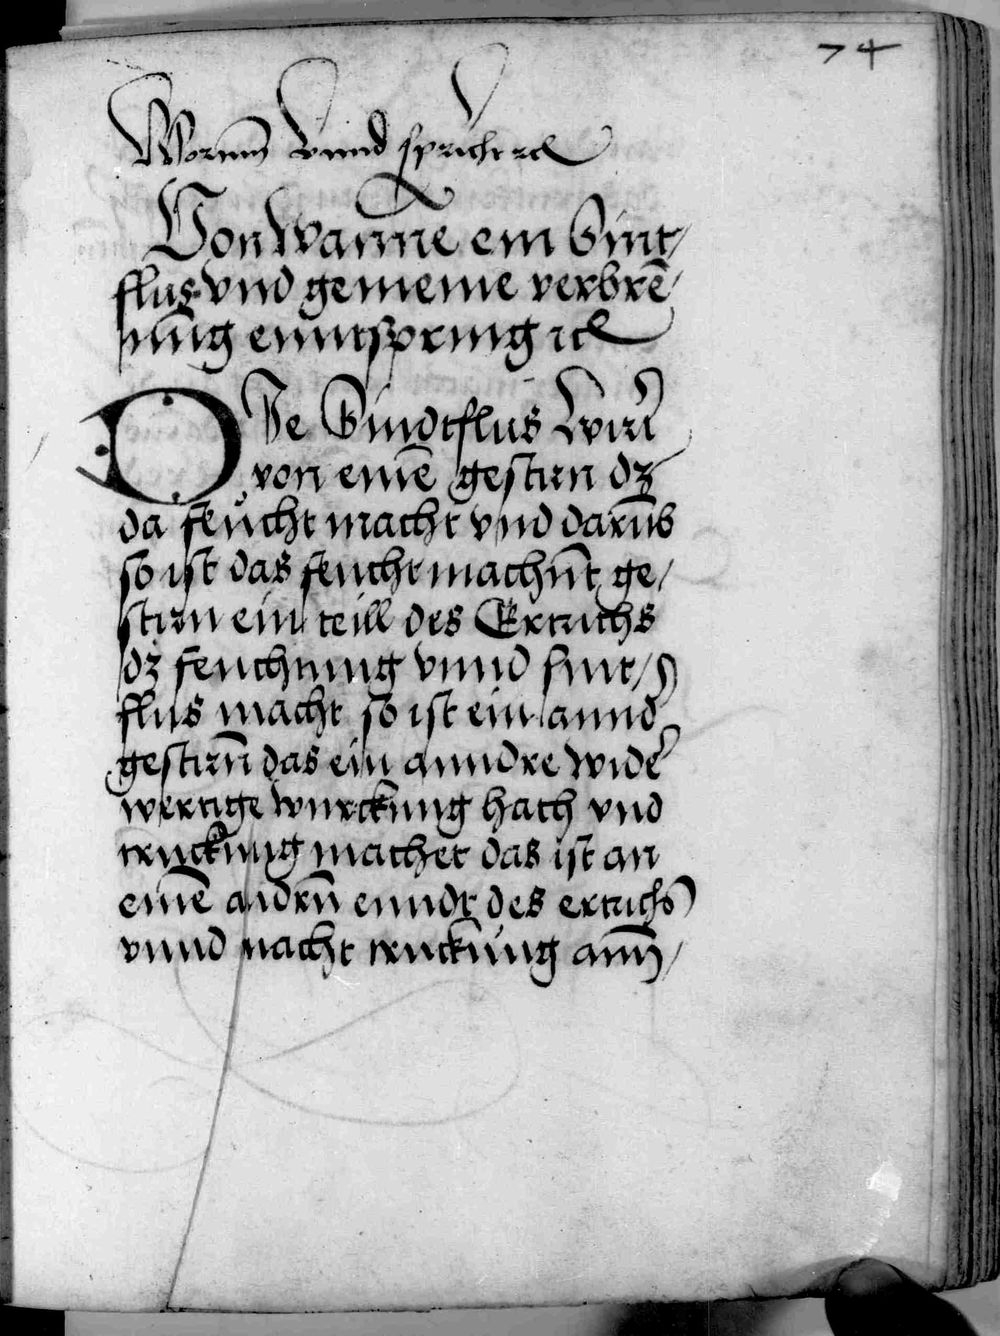 74
Worum Vnnd spricht etc
Von Wanne ein Sint/
flus vnd gemeine verbrē/
nūng enntspring etc
DJe Sindtflus Wirt
von einē gestirn dz
da feücht macht vnd darūb
so ist das feücht machn̄t ge/
stirn ein teill des Ertrichs
dz feüchtung vnnd sint/
flus macht so ist ein annd
gestirn̄ das ein anndre wider
wertige würckung hath vnd
truckung machet das ist an
einē andrn̄ enndt des ertrichs
vnnd macht truckūng ann/